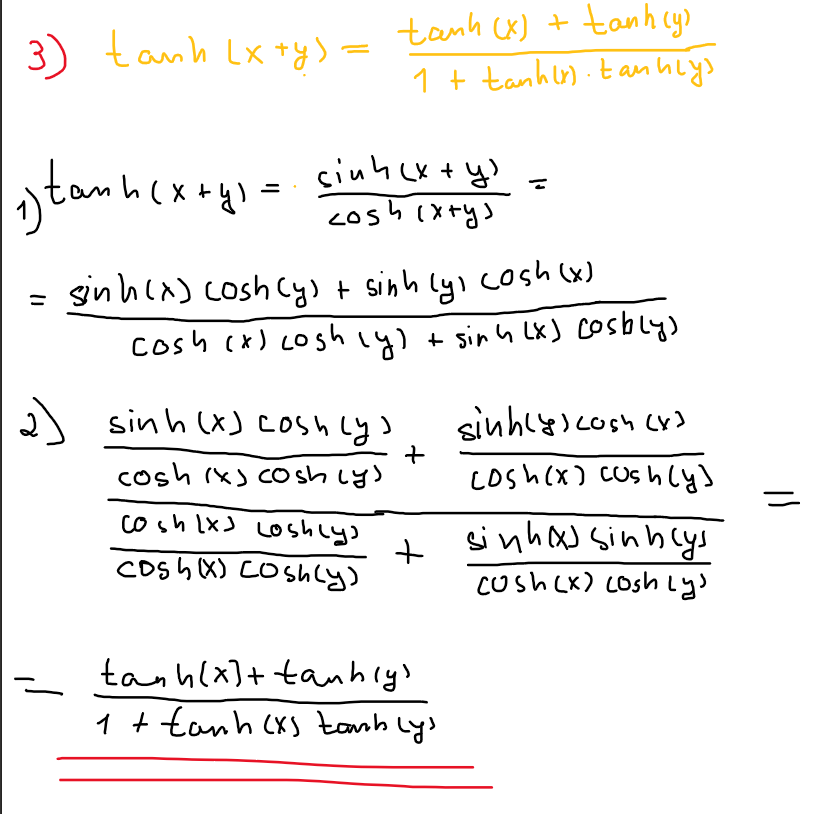 3) tanh(x+y) = (tanh(x) + tanh(y)) / (1 + tanh(x) · tanh(y))
1) tanh(x+y) = sinh(x+y) / cosh(x+y) =
= (sinh(x) cosh(y) + sinh(y) cosh(x)) / (cosh(x) cosh(y) + sinh(x) cosh(y))
2) (sinh(x) cosh(y) / cosh(x) cosh(y) + sinh(y) cosh(x) / cosh(x) cosh(y)) / (cosh(x) cosh(y) / cosh(x) cosh(y) + sinh(x) sinh(y) / cosh(x) cosh(y)) =
= (tanh(x) + tanh(y)) / (1 + tanh(x) tanh(y))